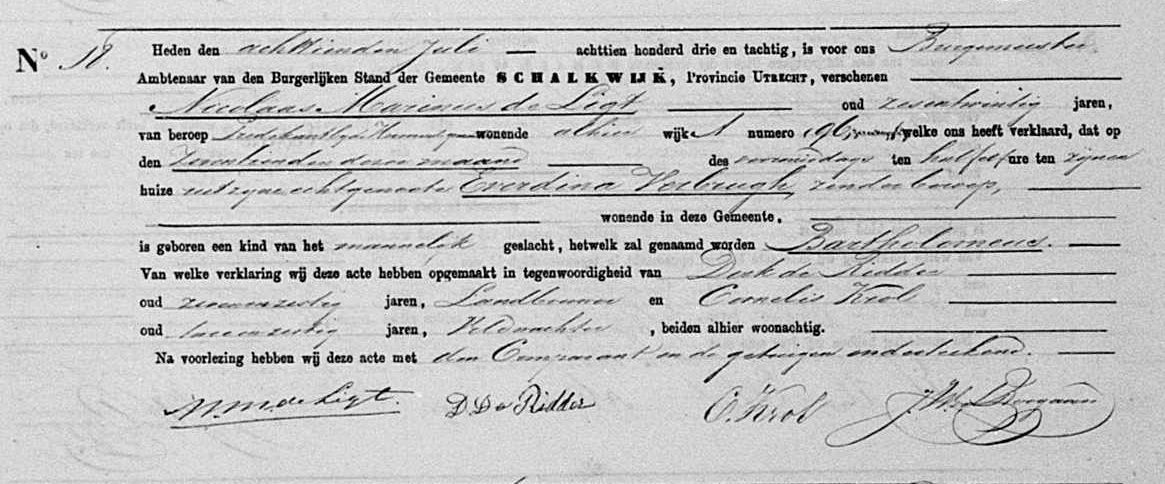 No 18. Heden den achttienden Juli achttien honderd drie en tachtig, is voor ons Burgemeester
Ambtenaar van den Burgerlijken Stand der Gemeente SCHALKWIJK, Provincie UTRECHT, verschenen
Nicolaas Marinus de Ligt oud zesentwintig jaren,
van beroep Predikant bij de Hervormde gem wonende alhier wijk A numero 196 welke ons heeft verklaard, dat op
den zeventienden dezer maand des voormiddags ten half elf ure ten zijnen
huize uit zijne echtgenoote Everdina Verbrugh, zonder beroep,
wonende in deze Gemeente,
is geboren een kind van het mannelijk geslacht, hetwelk zal genaamd worden Bartholomeus.
Van welke verklaring wij deze acte hebben opgemaakt in tegenwoordigheid van Dirk de Ridder
oud jaren, Landbouwer en Cornelis Krol
oud jaren, Veldwachter, beiden alhier woonachtig.
Na voorlezing hebben wij deze acte met den Comparant en de getuigen onderteekend.
N. M. de Ligt. D. De Ridder C. Krol